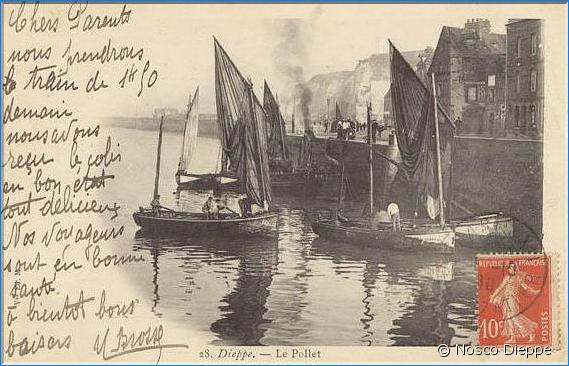 Chers Parents
nous prendrons
le train de 1h50
demain
nous avons
reçu le colis
en bon état
tout délicieux
Nos voyageurs
sont en bonne
santé.
à bientôt bons
baisers
28. Dieppe. — Le Pollet
REPUBLIQUE FRANÇAISE
10c
POSTES
© Nosco Dieppe